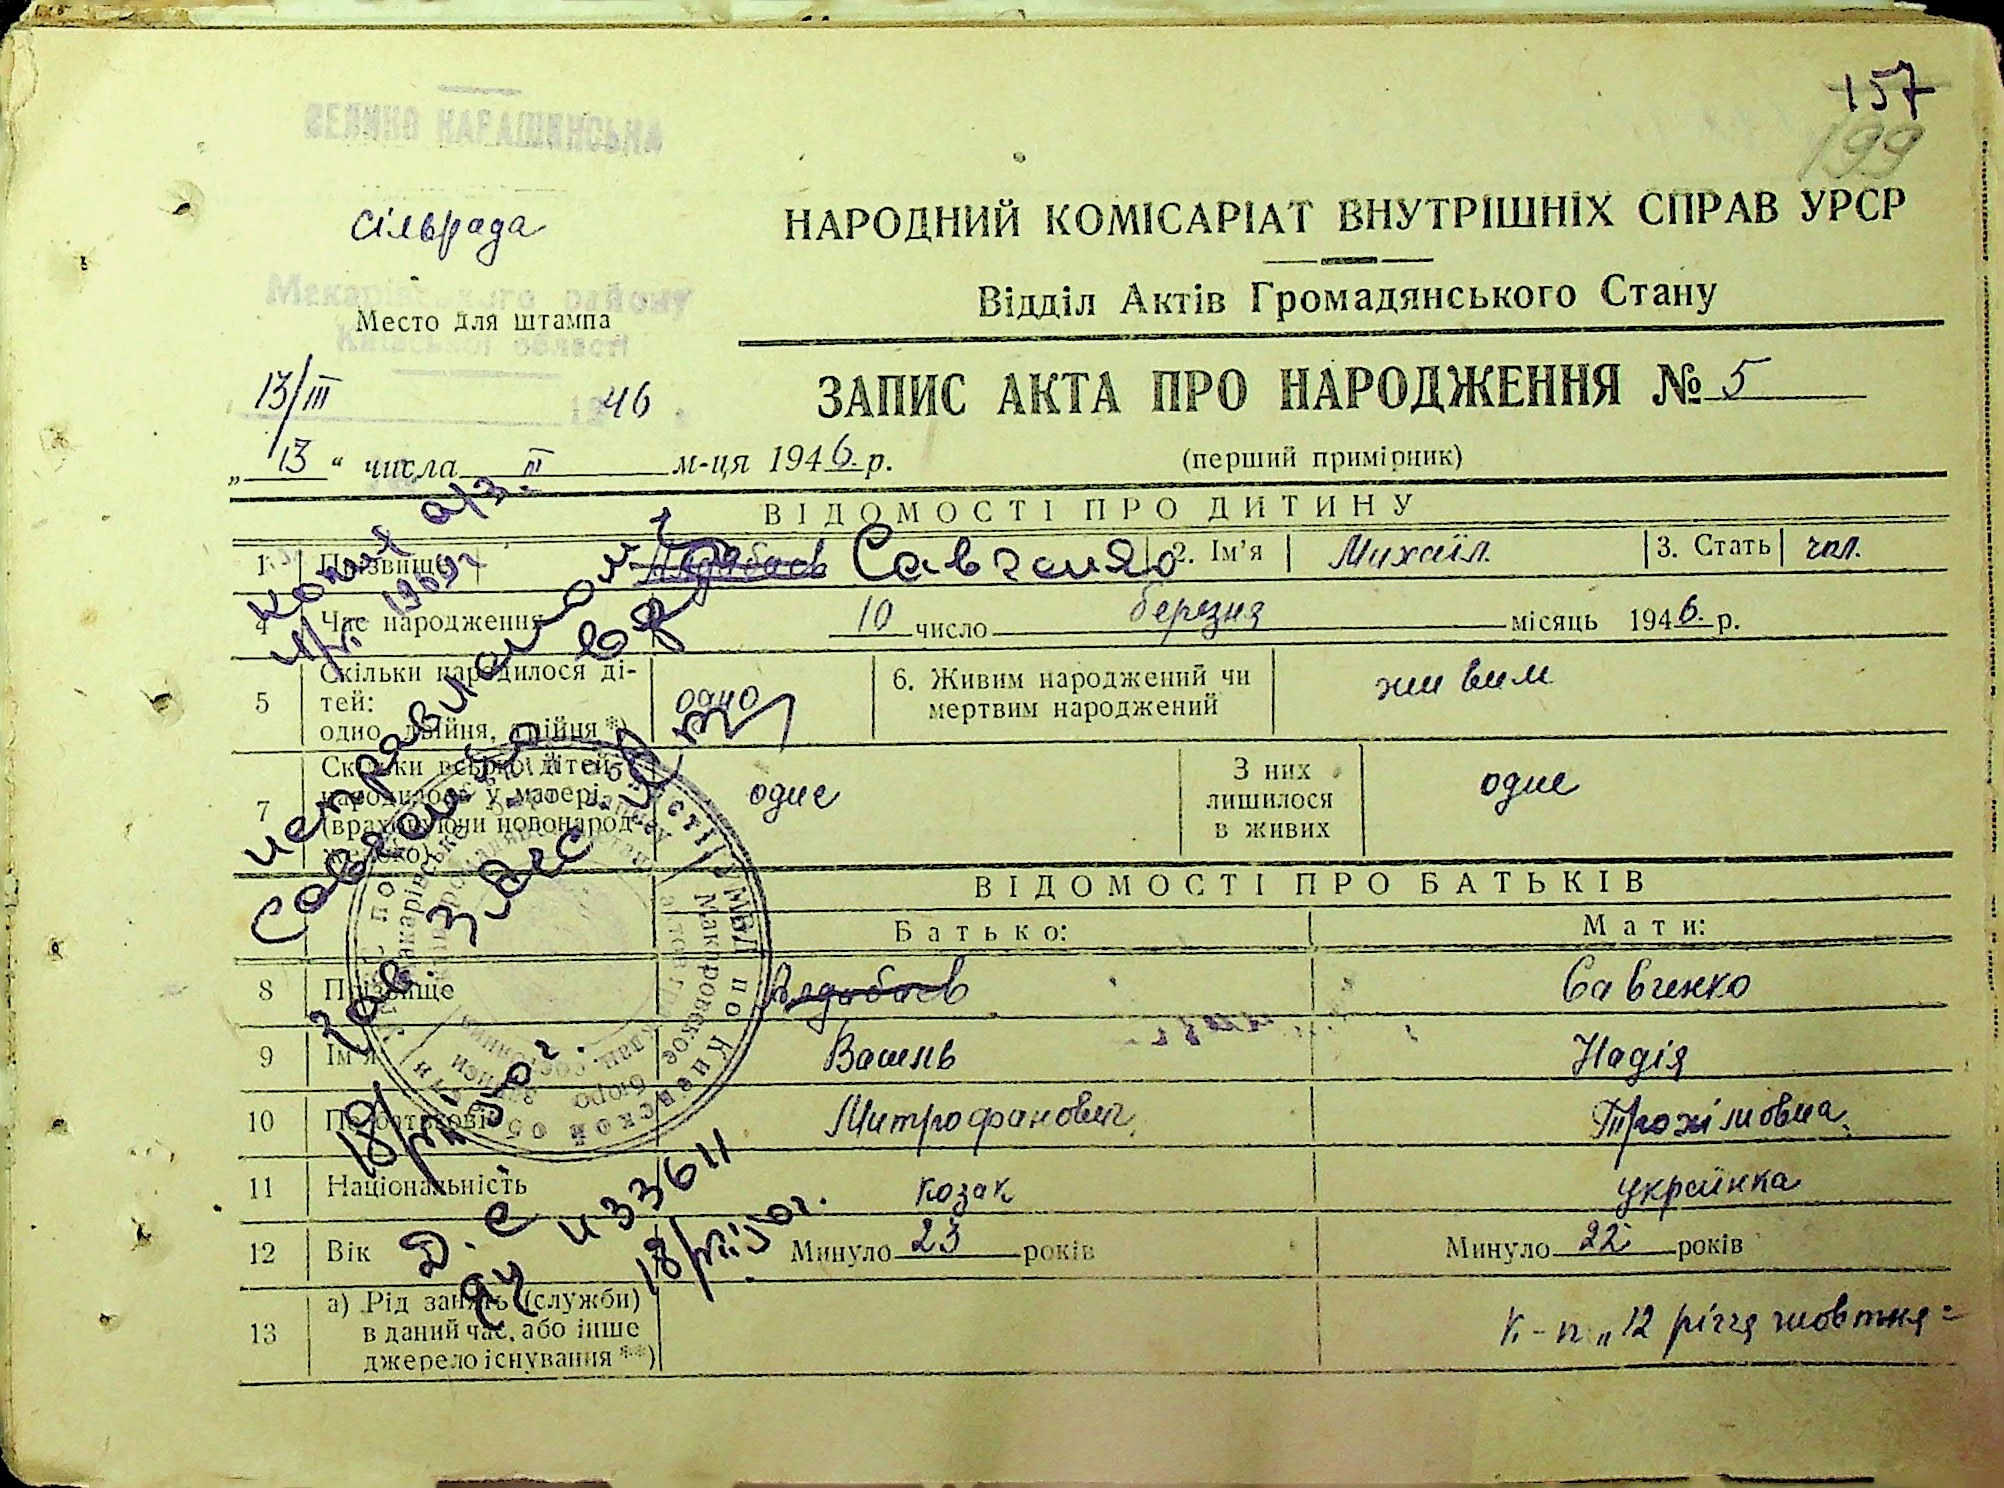 157
199
ВЕЛИКО КАРАШИНСЬКА
сільрада
Макарівського району
Место для штампа
Київської області
НАРОДНИЙ КОМІСАРІАТ ВНУТРІШНІХ СПРАВ УРСР
Відділ Актів Громадянського Стану
13/III 1946
ЗАПИС АКТА ПРО НАРОДЖЕННЯ № 5
„13“ числа II м-ця 1946 р.
(перший примірник)
ВІДОМОСТІ ПРО ДИТИНУ
1 Прізвище Савченко 2. Ім'я Михаіл. 3. Стать чол.
4 Час народження 10 число березня місяць 1946. р.
5 Скільки народилося ді-
тей:
одно, двійня, трійня *) одно
6. Живим народжений чи
мертвим народжений живим
7 Скільки всього дітей
народилося у матері
(враховуючи новонарод-
женого) одне
З них
лишилося
в живих одне
ВІДОМОСТІ ПРО БАТЬКІВ
Батько: Мати:
8 Прізвище Алдабаев Савченко
9 Ім'я Василь Надія
10 По батькові Митрофанович Трохімовна
11 Національність козак українка
12 Вік Минуло 23 років Минуло 22 років
13 а) Рід занять (служби)
в даний час, або інше
джерело існування **) к-п „12 річчя жовтня"
исправлено
Савченко
Зав. ЗАГС